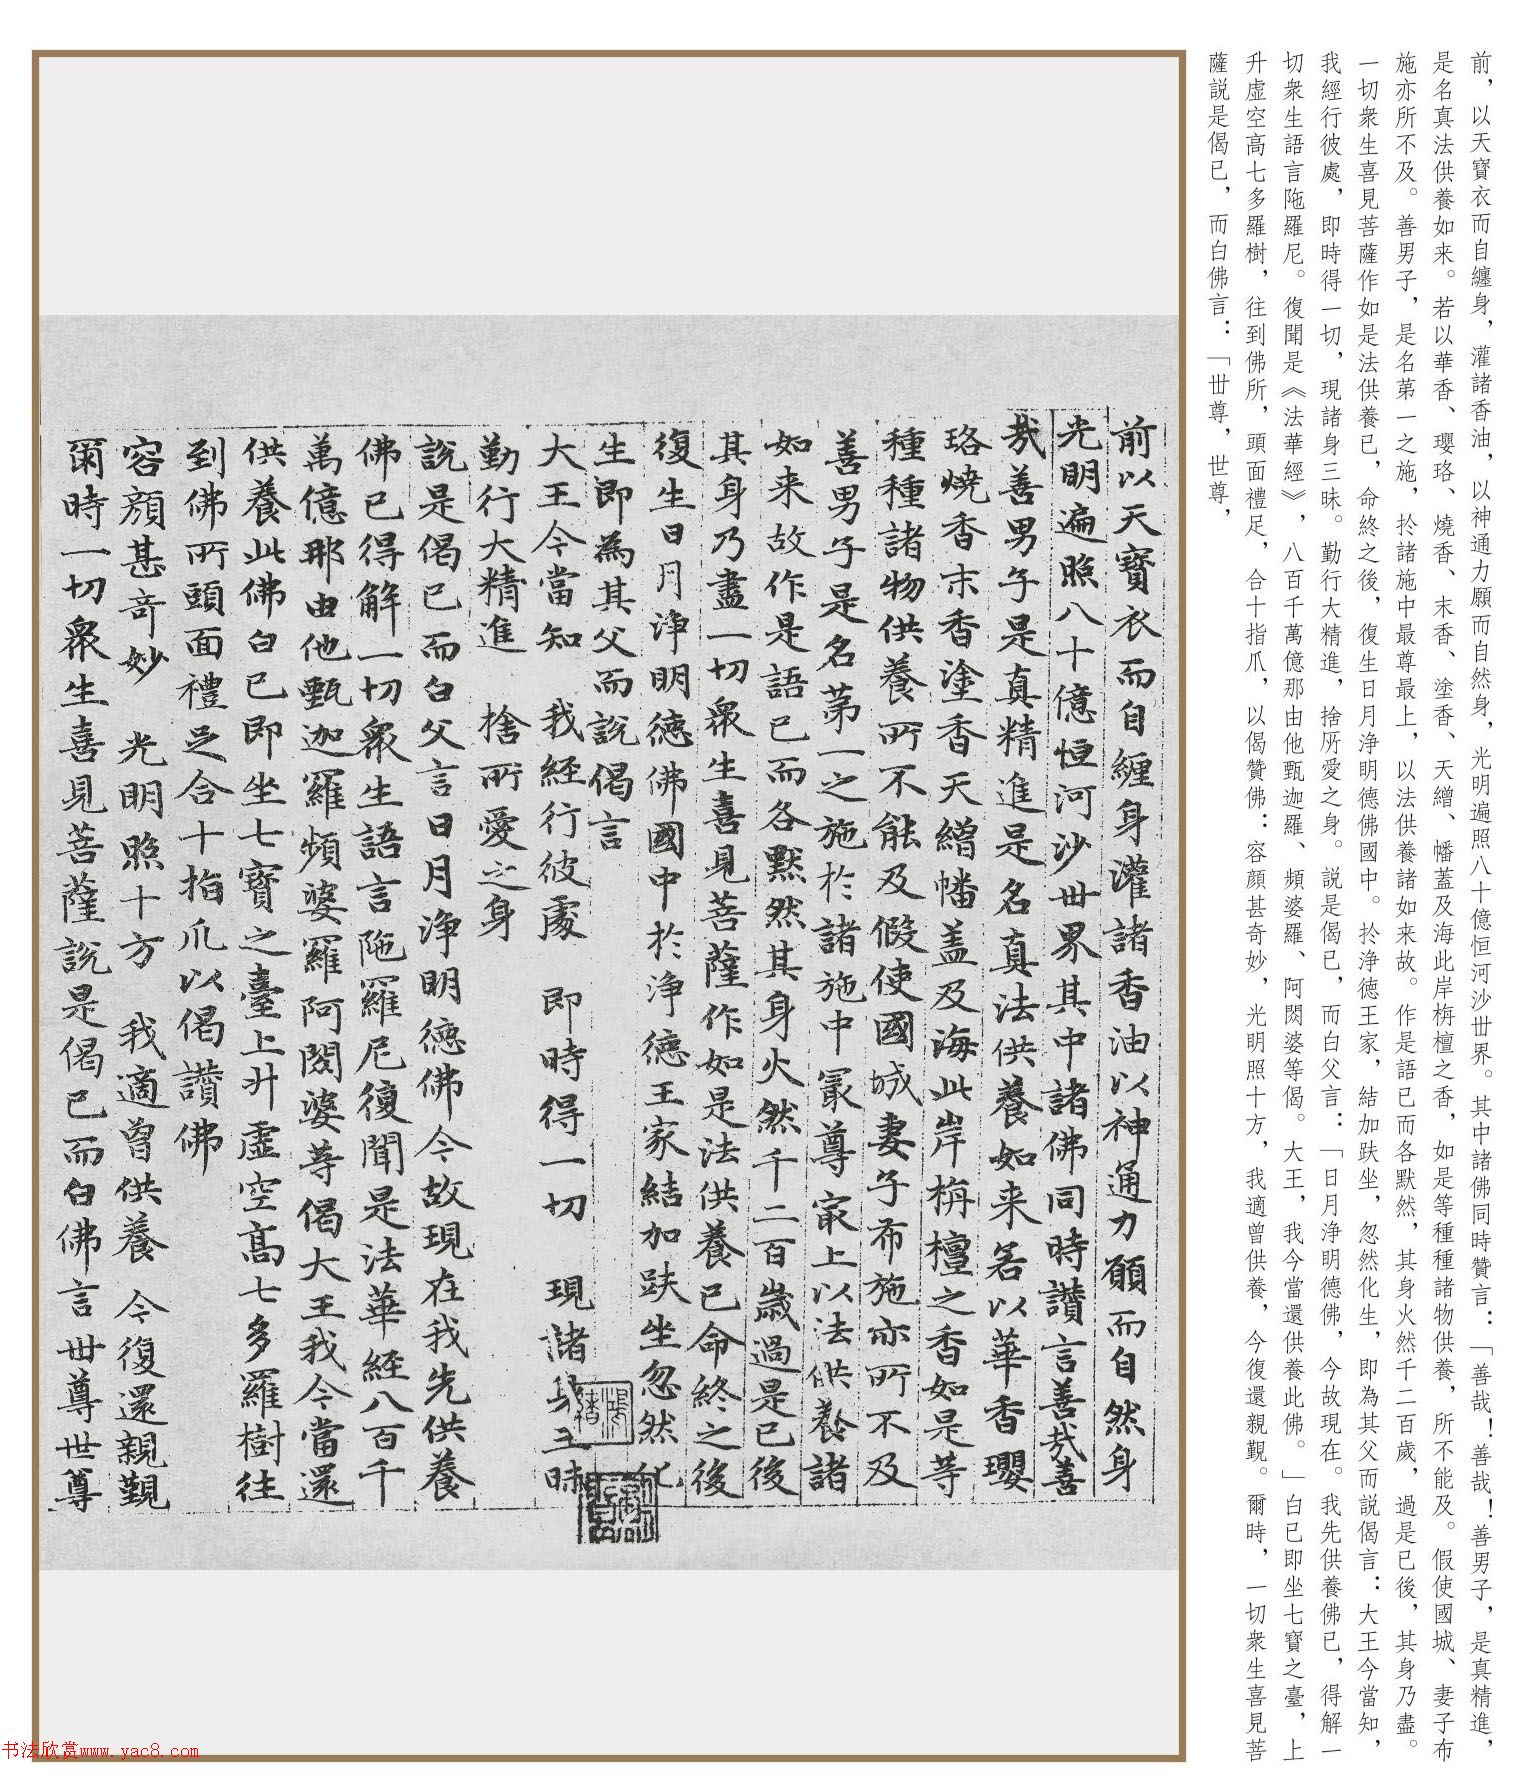 前，以天寳衣而自纏身，灌諸香油，以神通力願而自然身，光明遍照八十億恒河沙世界。其中諸佛同時贊言：「善哉！善哉！善男子，是真精進，
是名真法供養如来。若以華香、瓔珞、燒香、末香、塗香、天繒、幡蓋及海此岸栴檀之香，如是等種種諸物供養，所不能及。假使國城、妻子布
施亦所不及。善男子，是名苐一之施，扵諸施中最尊最上，以法供養諸如来故。作是語已而各默然，其身火然千二百歲，過是已後，其身乃盡。
一切衆生喜見菩薩作如是法供養已，命終之後，復生日月浄明德佛國中。扵浄德王家，結加趺坐，忽然化生，即為其父而説偈言：大王今當知，
我經行彼處，即時得一切，現諸身三昧。勤行大精進，捨所愛之身。説是偈已，而白父言：「日月浄明德佛，今故現在。我先供養佛已，得解一
切衆生語言陁羅尼。復聞是《法華經》，八百千萬億那由他甄迦羅、頻婆羅、阿閦婆等偈。大王，我今當還供養此佛。」白已即坐七寳之臺，上
升虛空高七多羅樹，往到佛所，頭面禮足，合十指爪，以偈贊佛：容顔甚奇妙，光明照十方，我適曾供養，今復還親覲。爾時，一切衆生喜見菩
薩説是偈已，而白佛言：「世尊，世尊，
前以天寳衣而自纏身灌諸香油以神通力願而自然身
光明遍照八十億恒河沙世界其中諸佛同時讃言善哉善
哉善男子是真精進是名真法供養如来若以華香瓔
珞燒香末香塗香天繒幡盖及海此岸栴檀之香如是等
種種諸物供養所不能及假使國城妻子布施亦所不及
善男子是名苐一之施扵諸施中冣尊冣上以法供養諸
如来故作是語已而各默然其身火然千二百歲過是已後
其身乃盡一切衆生喜見菩薩作如是法供養已命終之後
復生日月浄明德佛國中扵浄德王家結加趺坐忽然化
生即為其父而説偈言
大王今當知　我經行彼處　即時得一切　現諸身三昧
勤行大精進　捨所愛之身
説是偈已而白父言日月浄明德佛今故現在我先供養
佛已得解一切衆生語言陁羅尼復聞是法華經八百千
萬億那由他甄迦羅頻婆羅阿閦婆等偈大王我今當還
供養此佛白已即坐七寳之臺上升虛空髙七多羅樹往
到佛所頭面禮足合十指爪以偈讃佛
容顔甚奇妙　光明照十方　我適曾供養　今復還親覲
爾時一切衆生喜見菩薩説是偈已而白佛言世尊世尊
书法欣赏www.yac8.com